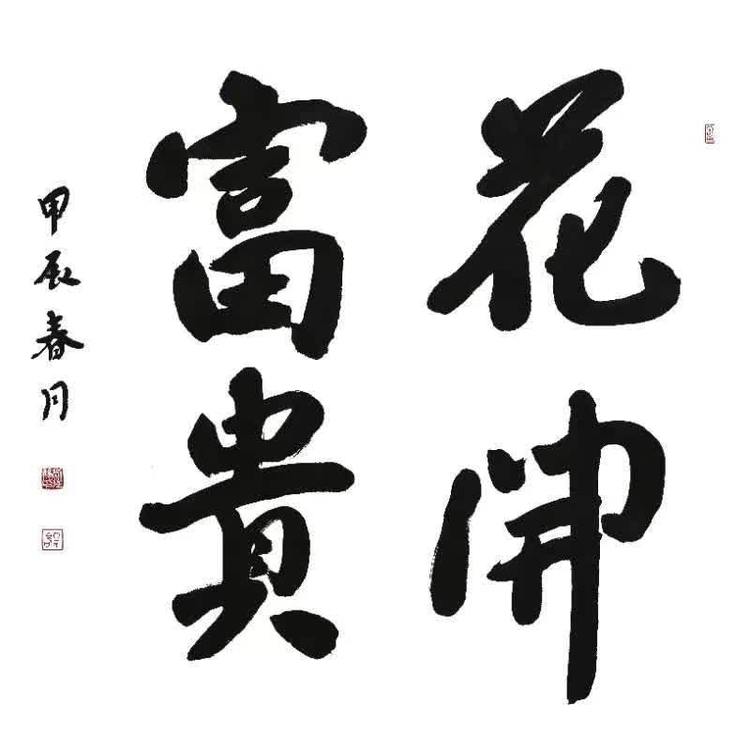 花開
富貴
甲辰春月